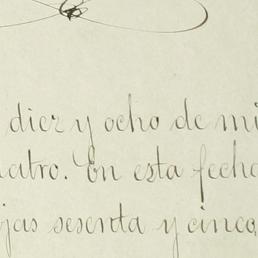 diez y ocho de mi
uatro. En esta fecha
jas sesenta y cinco